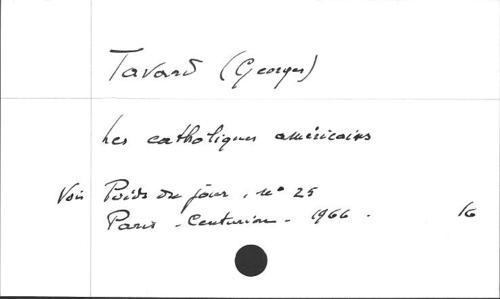 Tavard (Georges)
Les catholiques américains
Voir Poids du jour, n° 25
Paris - Centurion - 1966. 16